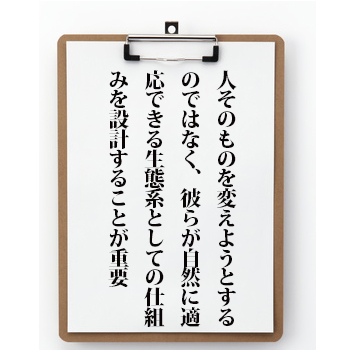 人そのものを変えようとする
のではなく、彼らが自然に適
応できる生態系としての仕組
みを設計することが重要